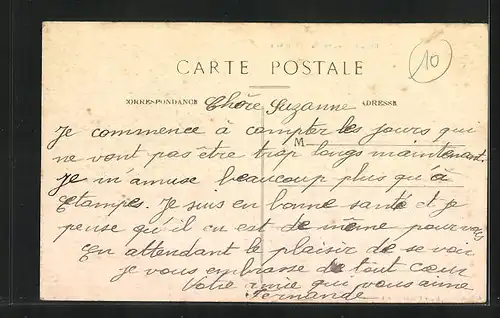 10
CARTE POSTALE
CORRESPONDANCE Chère Suzanne ADRESSE
Je commence à compter les jours qui
M
ne vont pas être trop longs maintenant.
Je m'amuse beaucoup plus qu'à
Etampes. Je suis en bonne santé et je
pense qu'il en est de même pour vous
En attendant le plaisir de se voir
je vous embrasse de tout cœur
Votre amie qui vous aime
Fernande